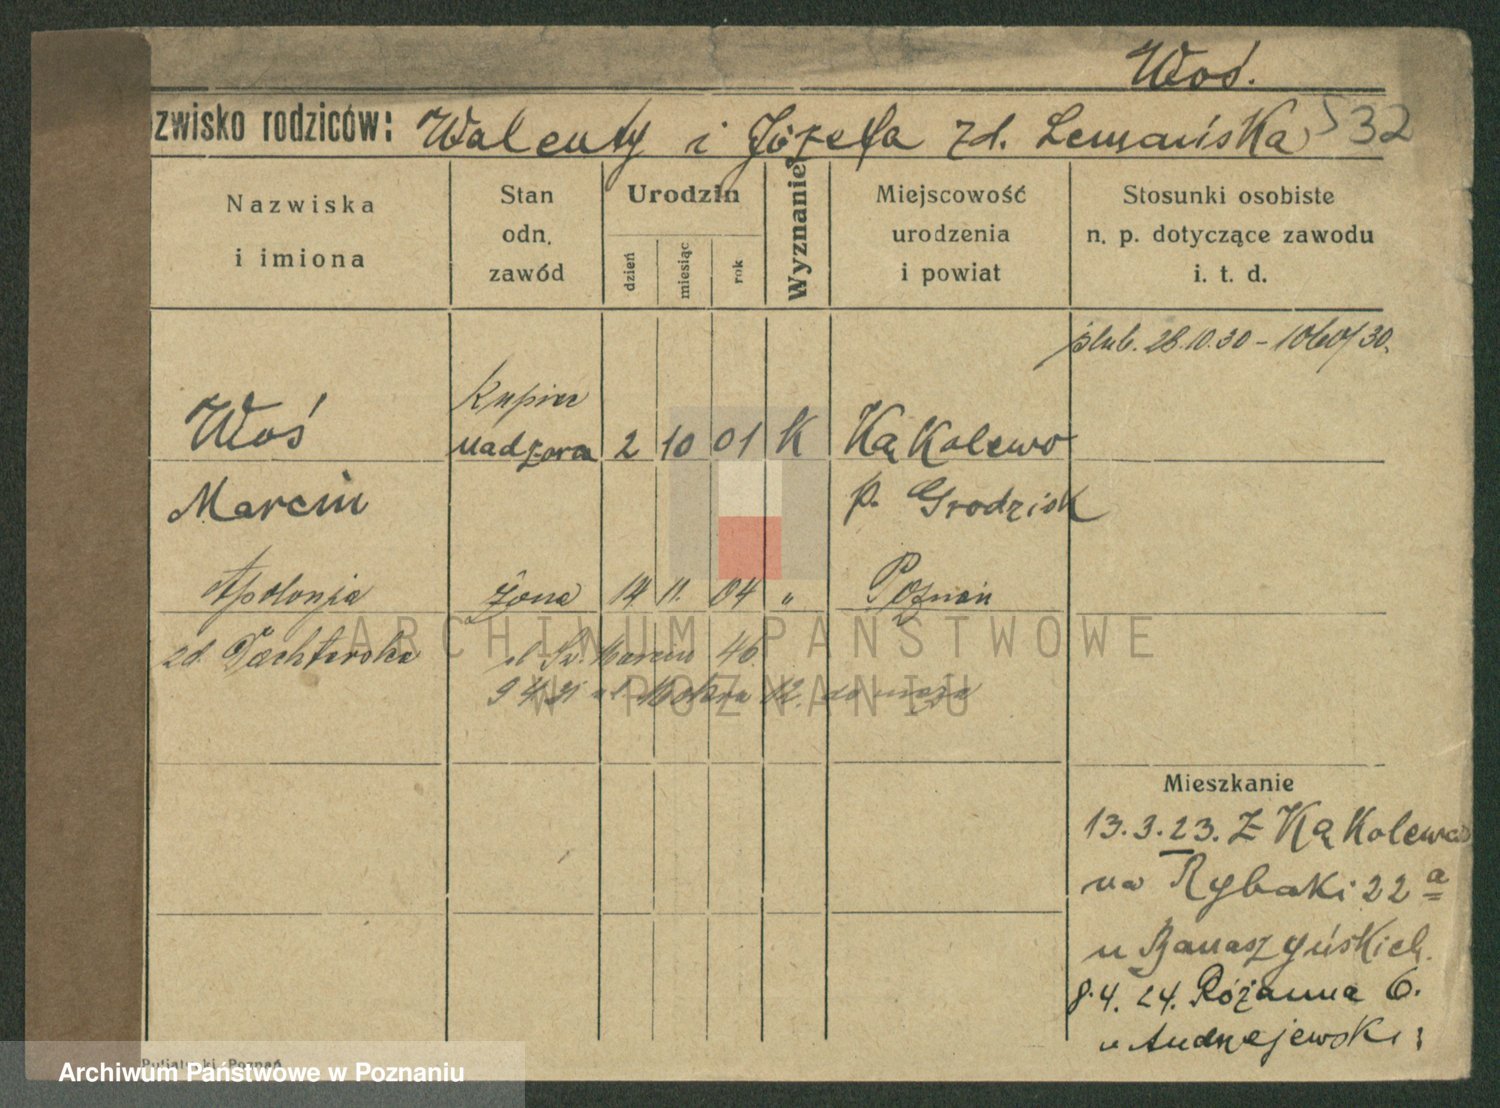 Woś.
zwisko rodziców: Walenty i Józefa zd. Lemańska 532
Nazwiska i imiona
Stan odn. zawód
Urodzin
dzień miesiąc rok
Wyznanie
Miejscowość urodzenia i powiat
Stosunki osobiste n. p. dotyczące zawodu i. t. d.
ślub. 28.10.30 - 1060/30.
Kupiec
Woś nadzorca 2 10 01 K Kąkolewo
Marcin p. Grodzisk
Apolonja żona 19 11. 04 " Poznań
zd. Tachterska ul Św. Marcin 46.
9 4 31 ul. Mokra 12. do męża
ARCHIWUM PAŃSTWOWE
W POZNANIU
Mieszkanie
13.3.23. Z Kąkolewa
na Rybaki 22 a
u Banaszyńskich.
8.4.24. Różanna 6.
u Andrzejewski
Poznań
Archiwum Państwowe w Poznaniu